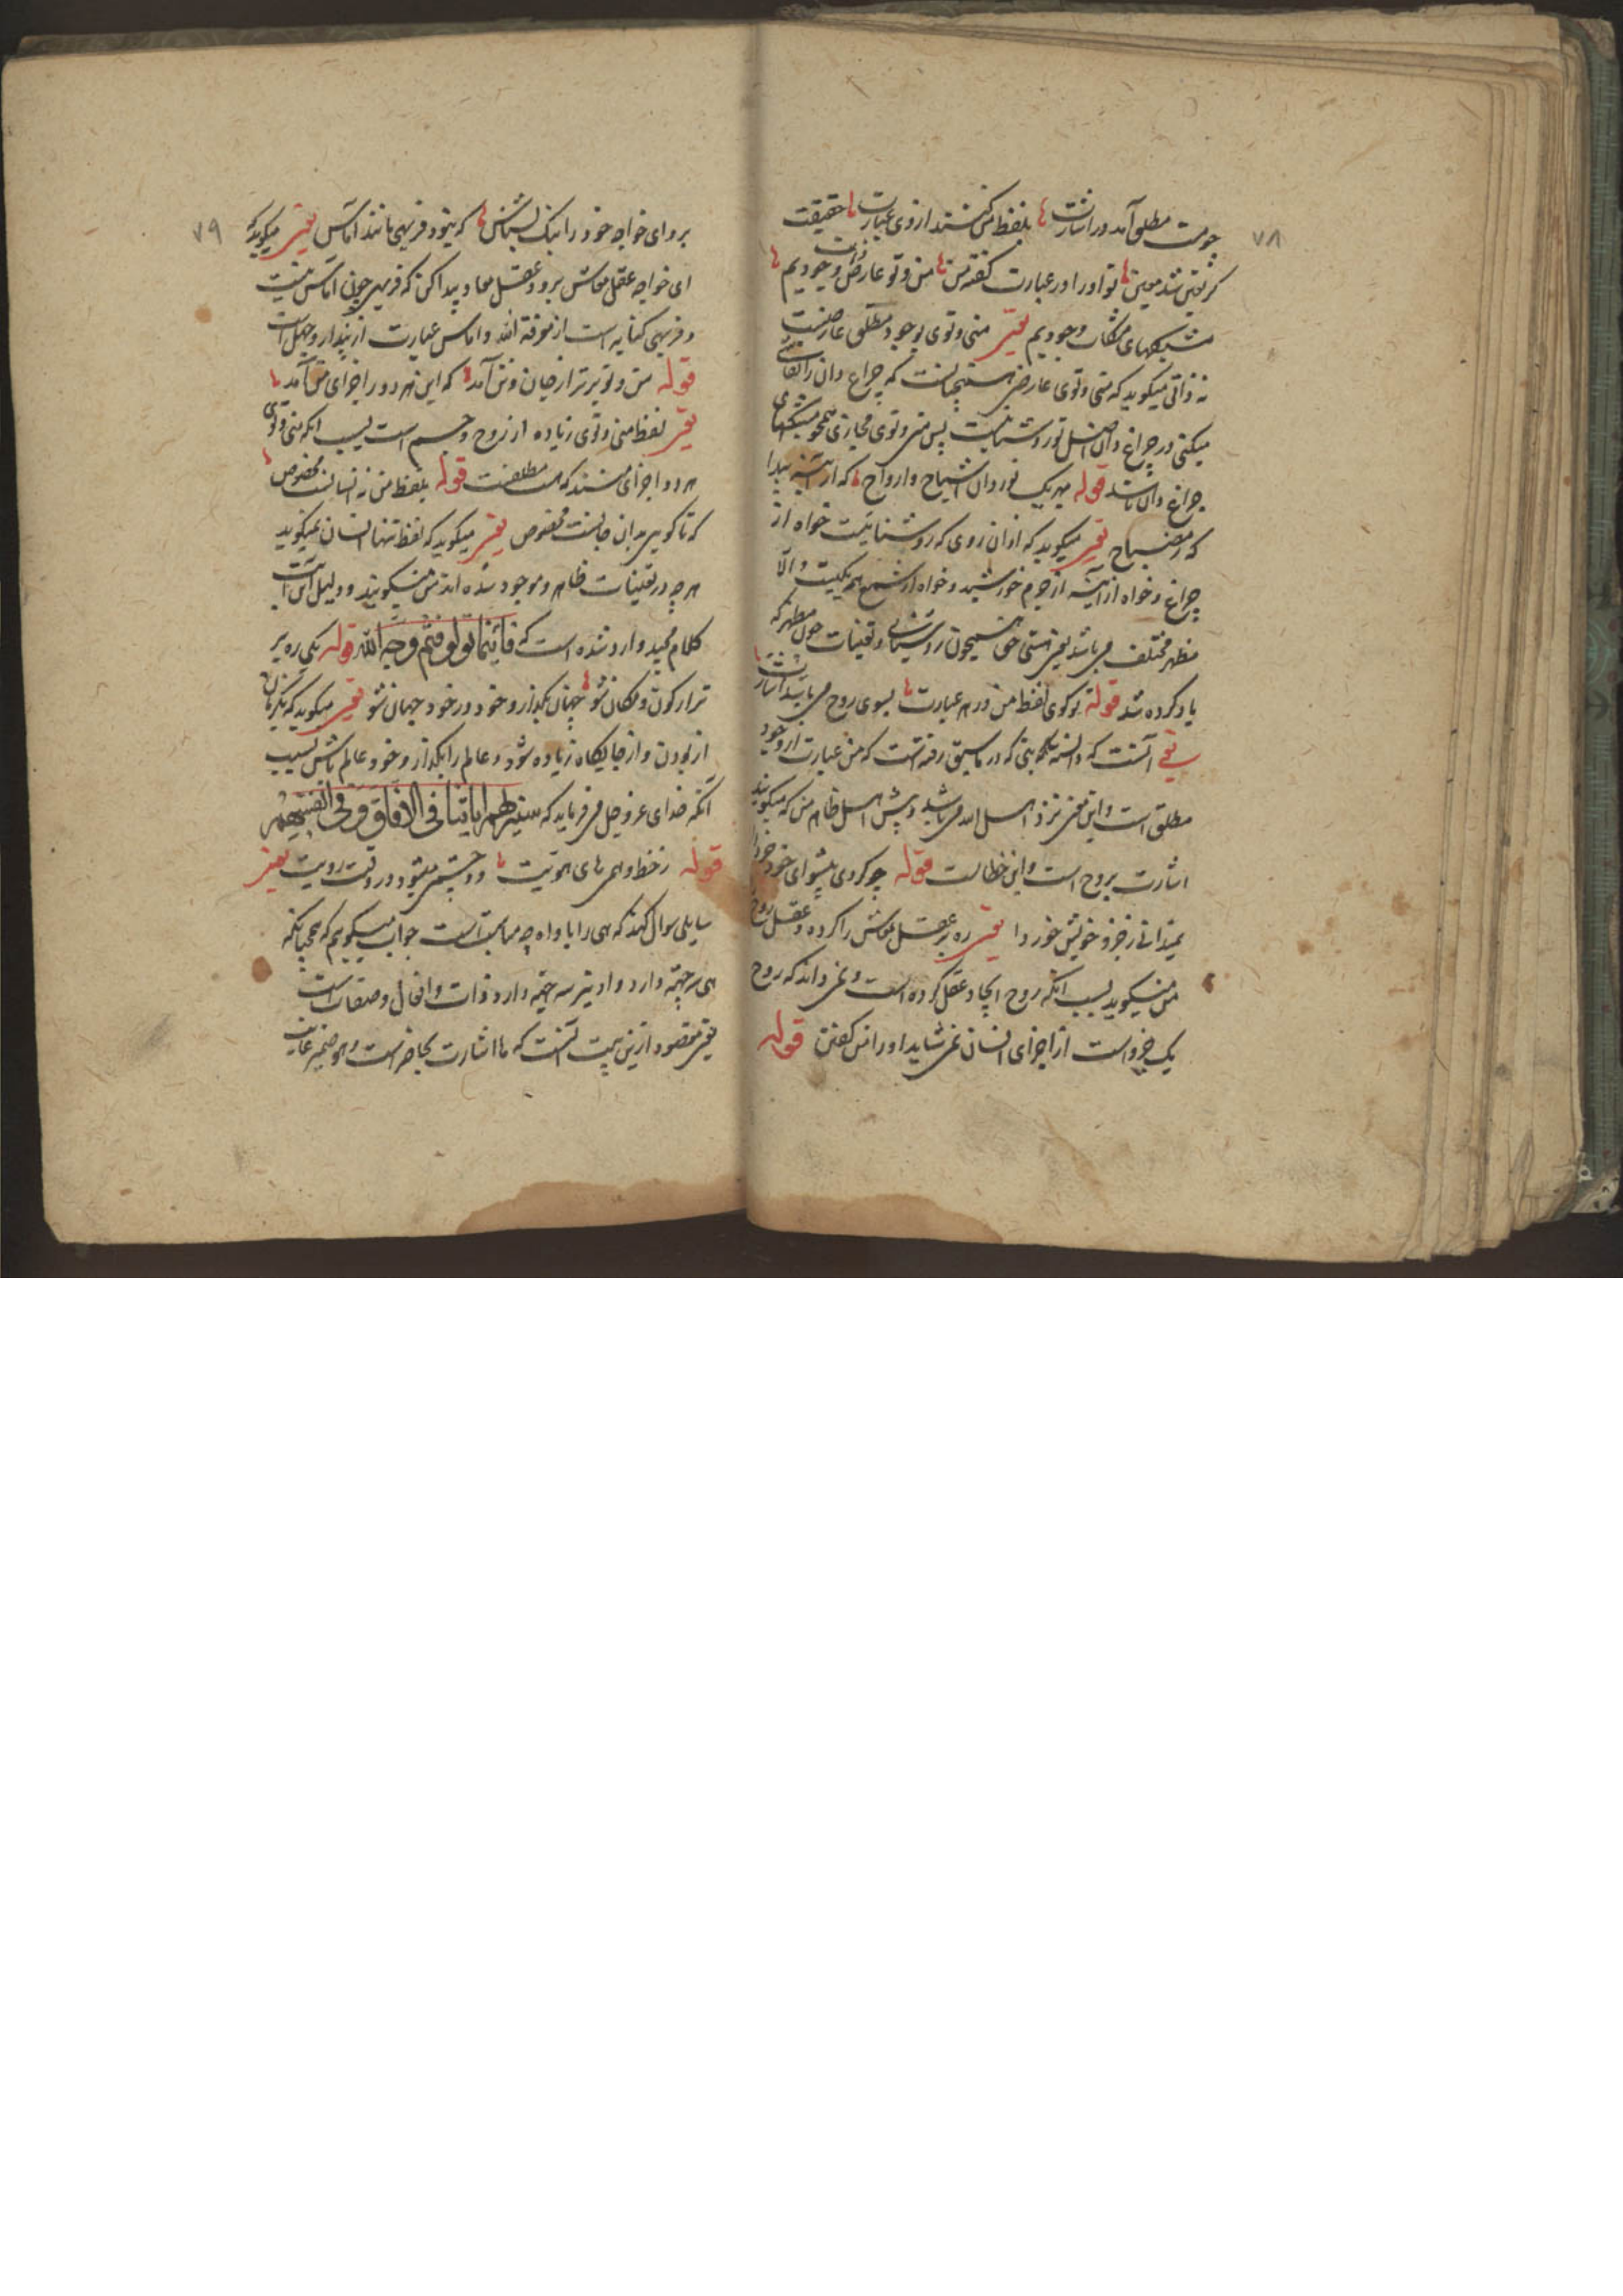 چو هست مطلق آمد در اشارت بلفظ من کنند از وی عبارت حقیقت
کز تعین شد معین تو او را در عبارت گفته من من و تو عارض ذات وجودیم
مشبکهای مشکات وجودیم یعنی منی و توی بوجود مطلق عارضیست
نه ذاتی میکوید که منی و توی عارض هستی چنانست که چراغ دان را
میکنی در چراغ دان اصل نور روشنائیست پس منی و توی مجازی همچو مشبکهای
چراغ دان باشد قوله همه یک نور دان اشباح و ارواح که از آئینه پیدا
که ز مصباح یعنی میکوید که از آن روی که روشنائیست خواه از
چراغ و خواه از آئینه از جرم خورشید و خواه از شمع همه یکیست و الا
مظهر مختلف می باشد یعنی هستی حق همچون روشنائی و تعینات چون مظهر که
یاد کرده شد قوله تو کوی لفظ من در هر عبارت بسوی روح می باشد اشارت
یعنی آنست که دانسته که در ما سبق رفته است که من عبارت از وجود
مطلق است و این معنی نزد اهل الله می باشد و پیش اهل ظاهر من که میکویند
اشارت بروح است و این خطا است قوله چو کردی پیشوای خود خرد را
نمیدانی ز جزو خویش خود را یعنی ره بر عقل معاش را کرده و عقل روح
من میکوید بسبب آنکه روح ایجاد عقل کرده است و نمی داند که روح
یک جزو است از اجزای انسان نمی شاید او را من کفتن قوله
۷۸
برو ای خواجه خود را نیک بشناس که نبود فربهی مانند آماس یعنی میکوید که
ای خواجه عقل معاش برو و عقل معاد پیدا کن که فربهی چون آماس نیست
و فربهی کنایه است از معرفة الله و آماس عبارت از پندار و جهل است
قوله من و تو برتر از جان و تن آمد که این هر دو ز اجزای من آمد
یعنی لفظ منی و توی زیاده از روح و جسم است بسبب آنکه منی و توی
هر دو اجزای هستند که هست مطلقست قوله بلفظ من نه انسانست مخصوص
که تا کویی بدان جانست مخصوص یعنی میکوید که لفظ تنها انسان نمیکوید
هر چه در تعینات ظاهر و موجود شده اند من میکویند و دلیل این آیت
کلام مجید وارد شده است که فَأَيْنَمَا تولوا فثم وجه الله قوله یکی ره بر
تر از کون و مکان شو جهان بگذار و خود در خود جهان شو یعنی میکوید که
از بودن و از جایکاه زیاده شو و عالم را بگذار و خود عالم باش بسبب
آنکه خدای عز و جل می فرماید که سنریهم ایاتنا فی الافاق و فی انفسهم
قوله ز خط وهمی های هویت دو چشمی میشود در وقت رویت یعنی
سایلی سوال کند که هی را با واو چه مناسبت است جواب میکویم که همچنانکه
هی سه جهة دارد واو نیز سه جهة دارد ذات و افعال و صفات است
یعنی مقصود ازین بیت آنست که ها اشارت بحاضر است و هو ضمیر غایب
۷۹